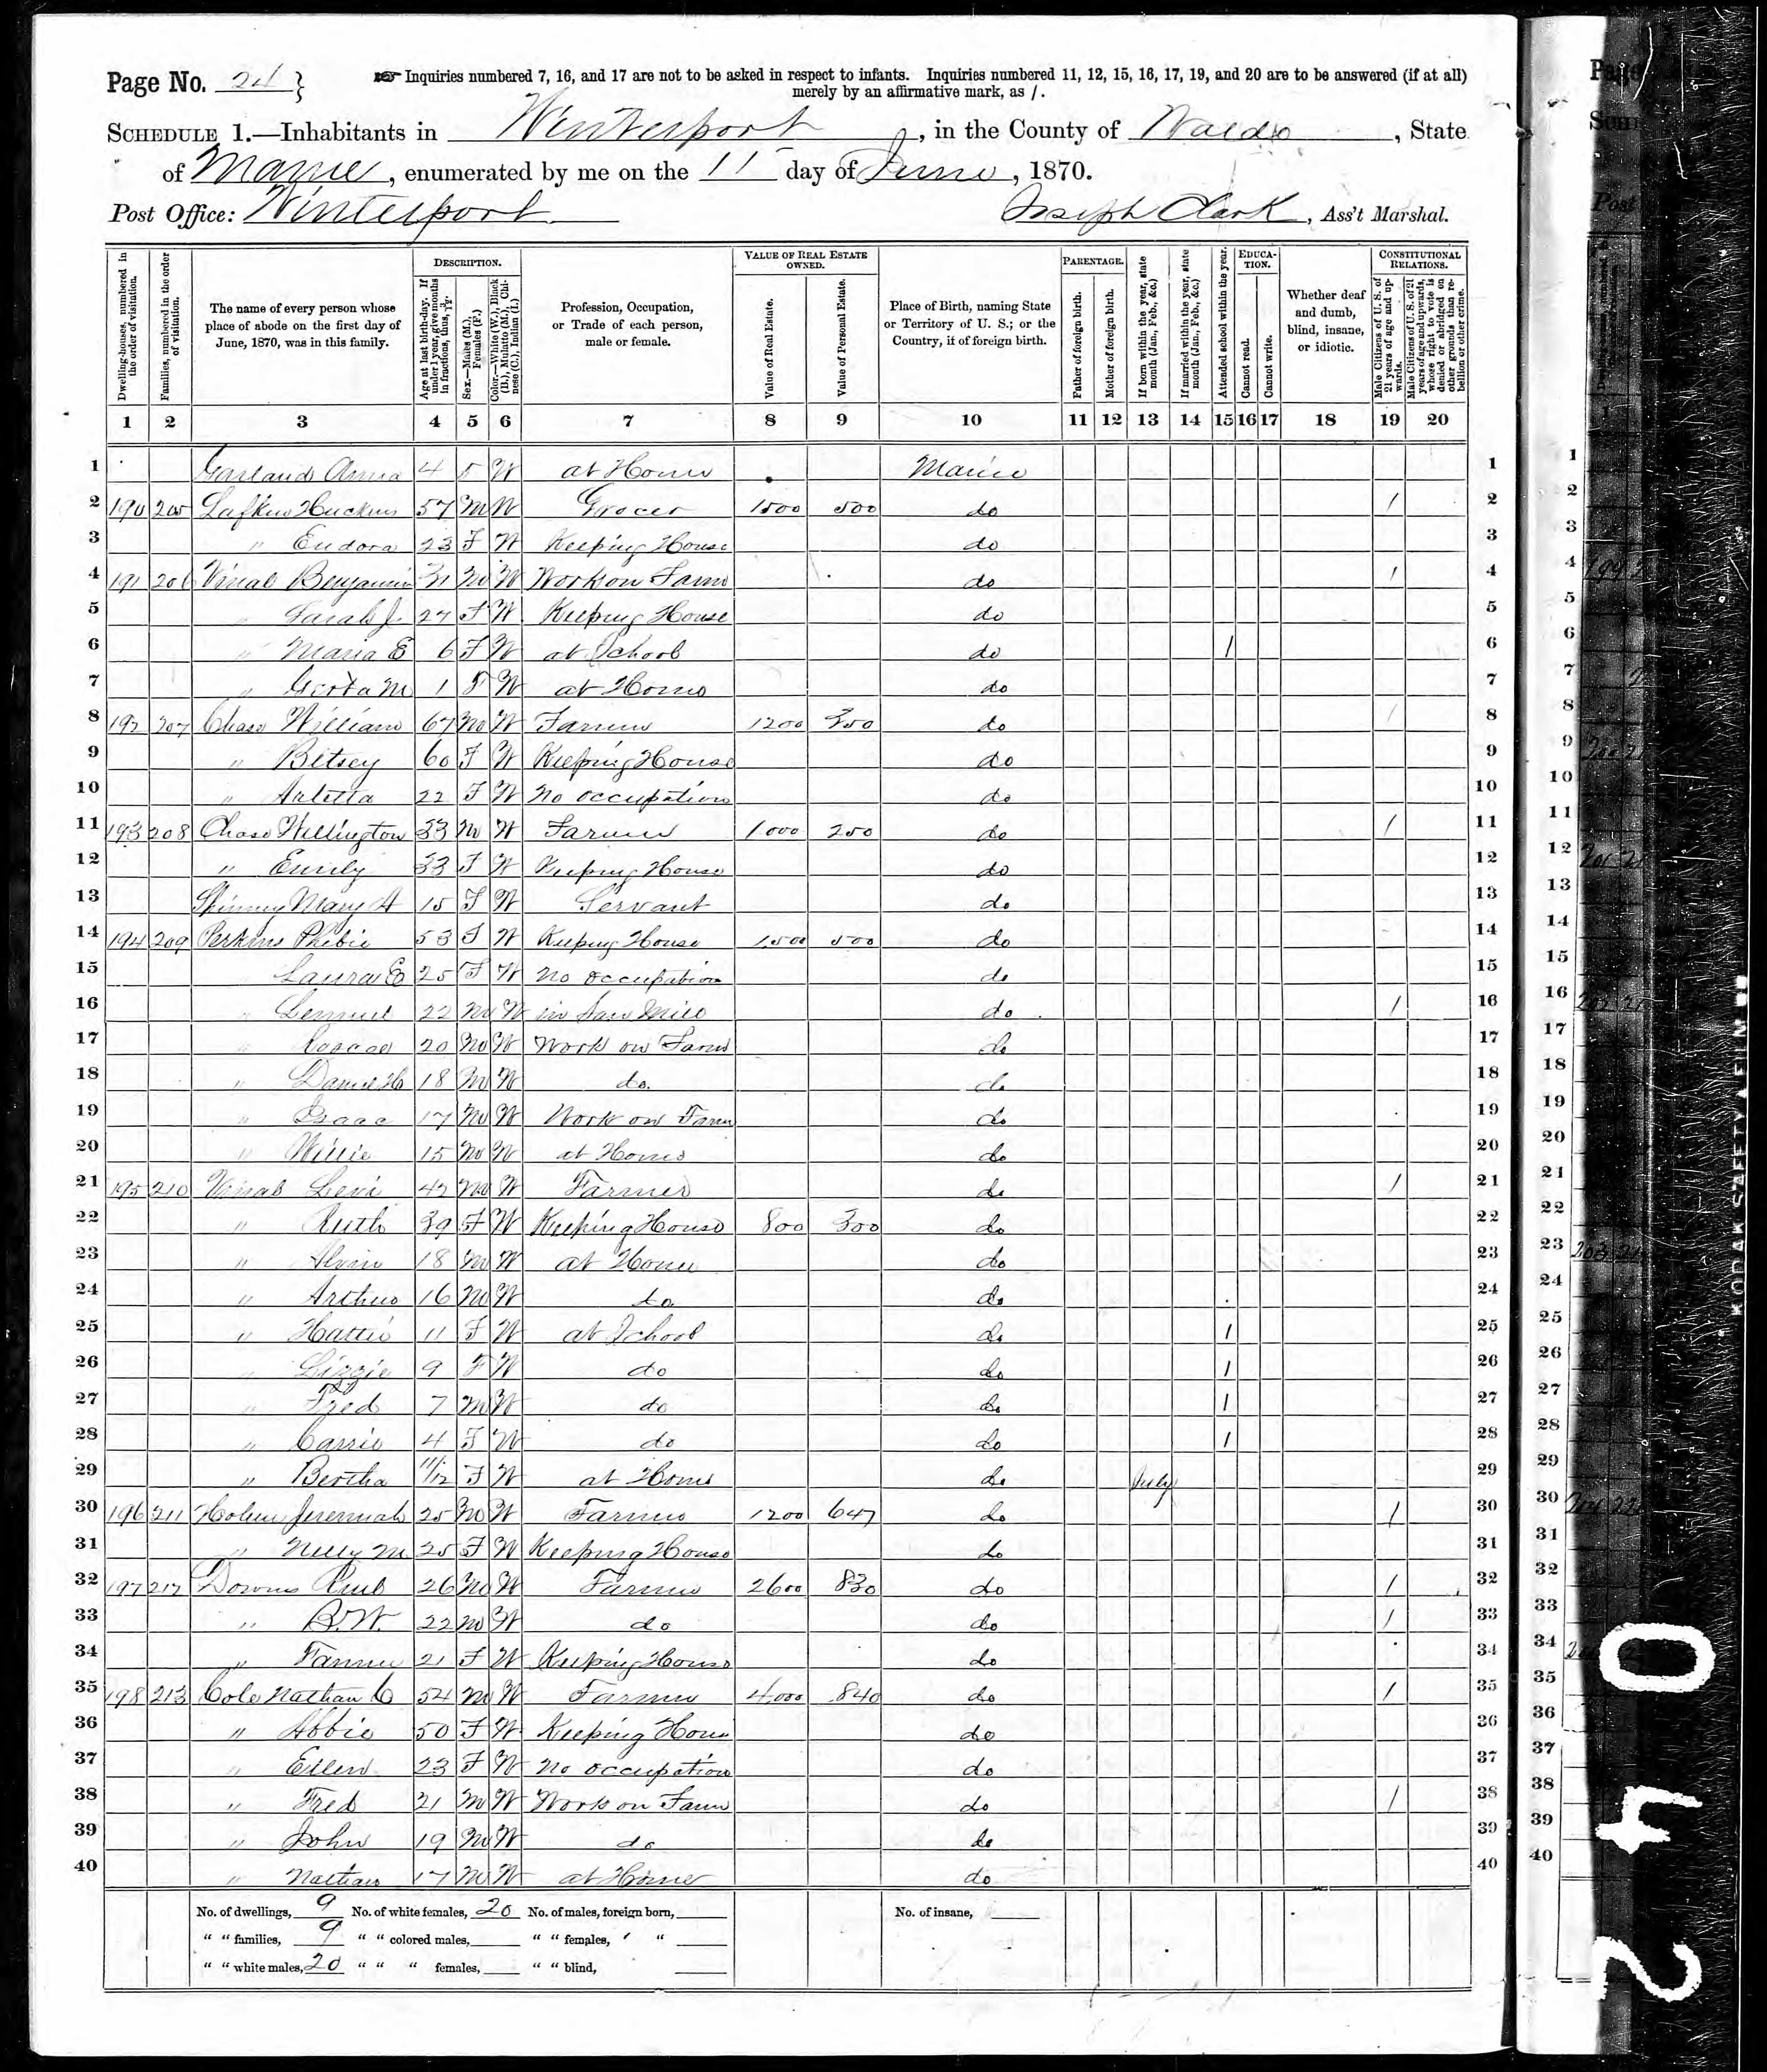 Page No. 24 }
Inquiries numbered 7, 16, and 17 are not to be asked in respect to infants. Inquiries numbered 11, 12, 15, 16, 17, 19, and 20 are to be answered (if at all)
merely by an affirmative mark, as /.
SCHEDULE 1.—Inhabitants in Winterport, in the County of Waldo, State
of Maine, enumerated by me on the 11 day of June, 1870.
Post Office: Winterport Joseph Clark, Ass't Marshal.
Dwelling-houses, numbered in the order of visitation.
Families, numbered in the order of visitation.
The name of every person whose place of abode on the first day of June, 1870, was in this family.
DESCRIPTION.
Age at last birth-day. If under 1 year, give months in fractions, thus, 3/12.
Sex.—Males (M.), Females (F.)
Color.—White (W.), Black (B.), Mulatto (M.), Chinese (C.), Indian (I.)
Profession, Occupation, or Trade of each person, male or female.
VALUE OF REAL ESTATE OWNED.
Value of Real Estate.
Value of Personal Estate.
Place of Birth, naming State or Territory of U. S.; or the Country, if of foreign birth.
PARENTAGE.
Father of foreign birth.
Mother of foreign birth.
If born within the year, state month (Jan., Feb., &c.)
If married within the year, state month (Jan., Feb., &c.)
Attended school within the year.
EDUCATION.
Cannot read.
Cannot write.
Whether deaf and dumb, blind, insane, or idiotic.
CONSTITUTIONAL RELATIONS.
Male Citizens of U. S. of 21 years of age and upwards.
Male Citizens of U. S. of 21 years of age and upwards, whose right to vote is denied or abridged on other grounds than rebellion or other crime.
1 2 3 4 5 6 7 8 9 10 11 12 13 14 15 16 17 18 19 20
1 Garland Anna 4 F W at Home Maine 1
2 190 205 Huckins 57 M W Grocer 1500 500 do / 2
3 " Eudora 23 F W Keeping House do 3
4 191 206 Vinal Benjamin 31 M W Work on Farm do / 4
5 " Sarah J. 27 F W Keeping House do 5
6 " Maria E 6 F W at School do / 6
7 " M 1 F W at Home do 7
8 192 207 Chase William 67 M W Farmer 1200 350 do / 8
9 " Betsey 60 F W Keeping House do 9
10 " Arletta 22 F W No occupation do 10
11 193 208 Chase Wellington 33 M W Farmer 1000 250 do / 11
12 " Emily 33 F W Keeping House do 12
13 Mary A 15 F W Servant do 13
14 194 209 Perkins Phebie 53 F W Keeping House 1500 500 do 14
15 Laura E 25 F W No occupation do 15
16 " Lemuel 22 M W in Saw Mill do / 16
17 " Roscoe 20 M W Work on Farm do 17
18 " Daniel H 18 M W do. do 18
19 " Isaac 17 M W Work on Farm do 19
20 " Willie 15 M W at Home do 20
21 195 210 Vinal Levi 42 M W Farmer do / 21
22 " Ruth 39 F W Keeping House 800 300 do 22
23 " Alvin 18 M W at Home do 23
24 " Arthur 16 M W do. do 24
25 " Hattie 11 F W at School do / 25
26 " Lizzie 9 F W do do / 26
27 " Fred 7 M W do do / 27
28 " Carrie 4 F W do do / 28
29 " Bertha 11/12 F W at Home do July 29
30 196 211 Jeremiah 25 M W Farmer 1200 647 do / 30
31 " Nelly M 25 F W Keeping House do 31
32 197 212 Downs 26 M W Farmer 2600 830 do / 32
33 " W. 22 M W do do / 33
34 " Fannie 21 F W Keeping House do 34
35 198 213 Cole Nathan C 54 M W Farmer 4000 840 do / 35
36 " Abbie 50 F W Keeping House do 36
37 " Ellen 23 F W No occupation do 37
38 " Fred 21 M W Work on Farm do / 38
39 " John 19 M W do do 39
40 " Nathan 17 M W at Home do 40
No. of dwellings, 9 No. of white females, 20 No. of males, foreign born, No. of insane,
" " families, 9 " " colored males, " " females, " "
" " white males, 20 " " " females, " " blind,
KODAK SAFETY FILM
240